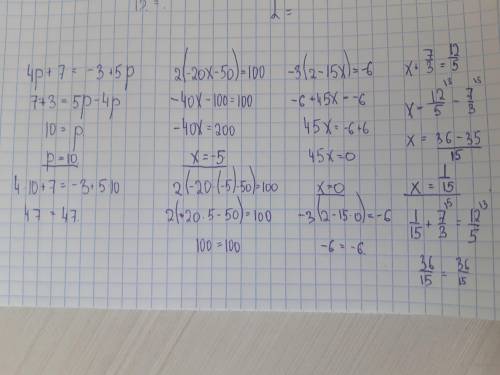 2 =
4p+7 = -3+5p
7+3 = 5p-4p
10 = p
p = 10
4·10+7 = -3+5·10
47 = 47
2(-20x-50)=100
-40x-100=100
-40x=200
x=-5
2(-20·(-5)-50)=100
2(+20·5-50)=100
100=100
-3(2-15x)=-6
-6+45x=-6
45x=-6+6
45x=0
x=0
-3(2-15·0)=-6
-6=-6
x+7/3=12/5
x=12/5-7/3
x=36-35/15
x=1/15
1/15+7/3=12/5
36/15=36/15